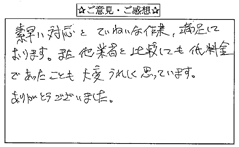 ☆ご意見・ご感想☆
素早い対応と ていねいな作業、満足して
おります。また 他業者と 比較しても 低料金
であったことも 大変うれしく思っています。
ありがとうございました。